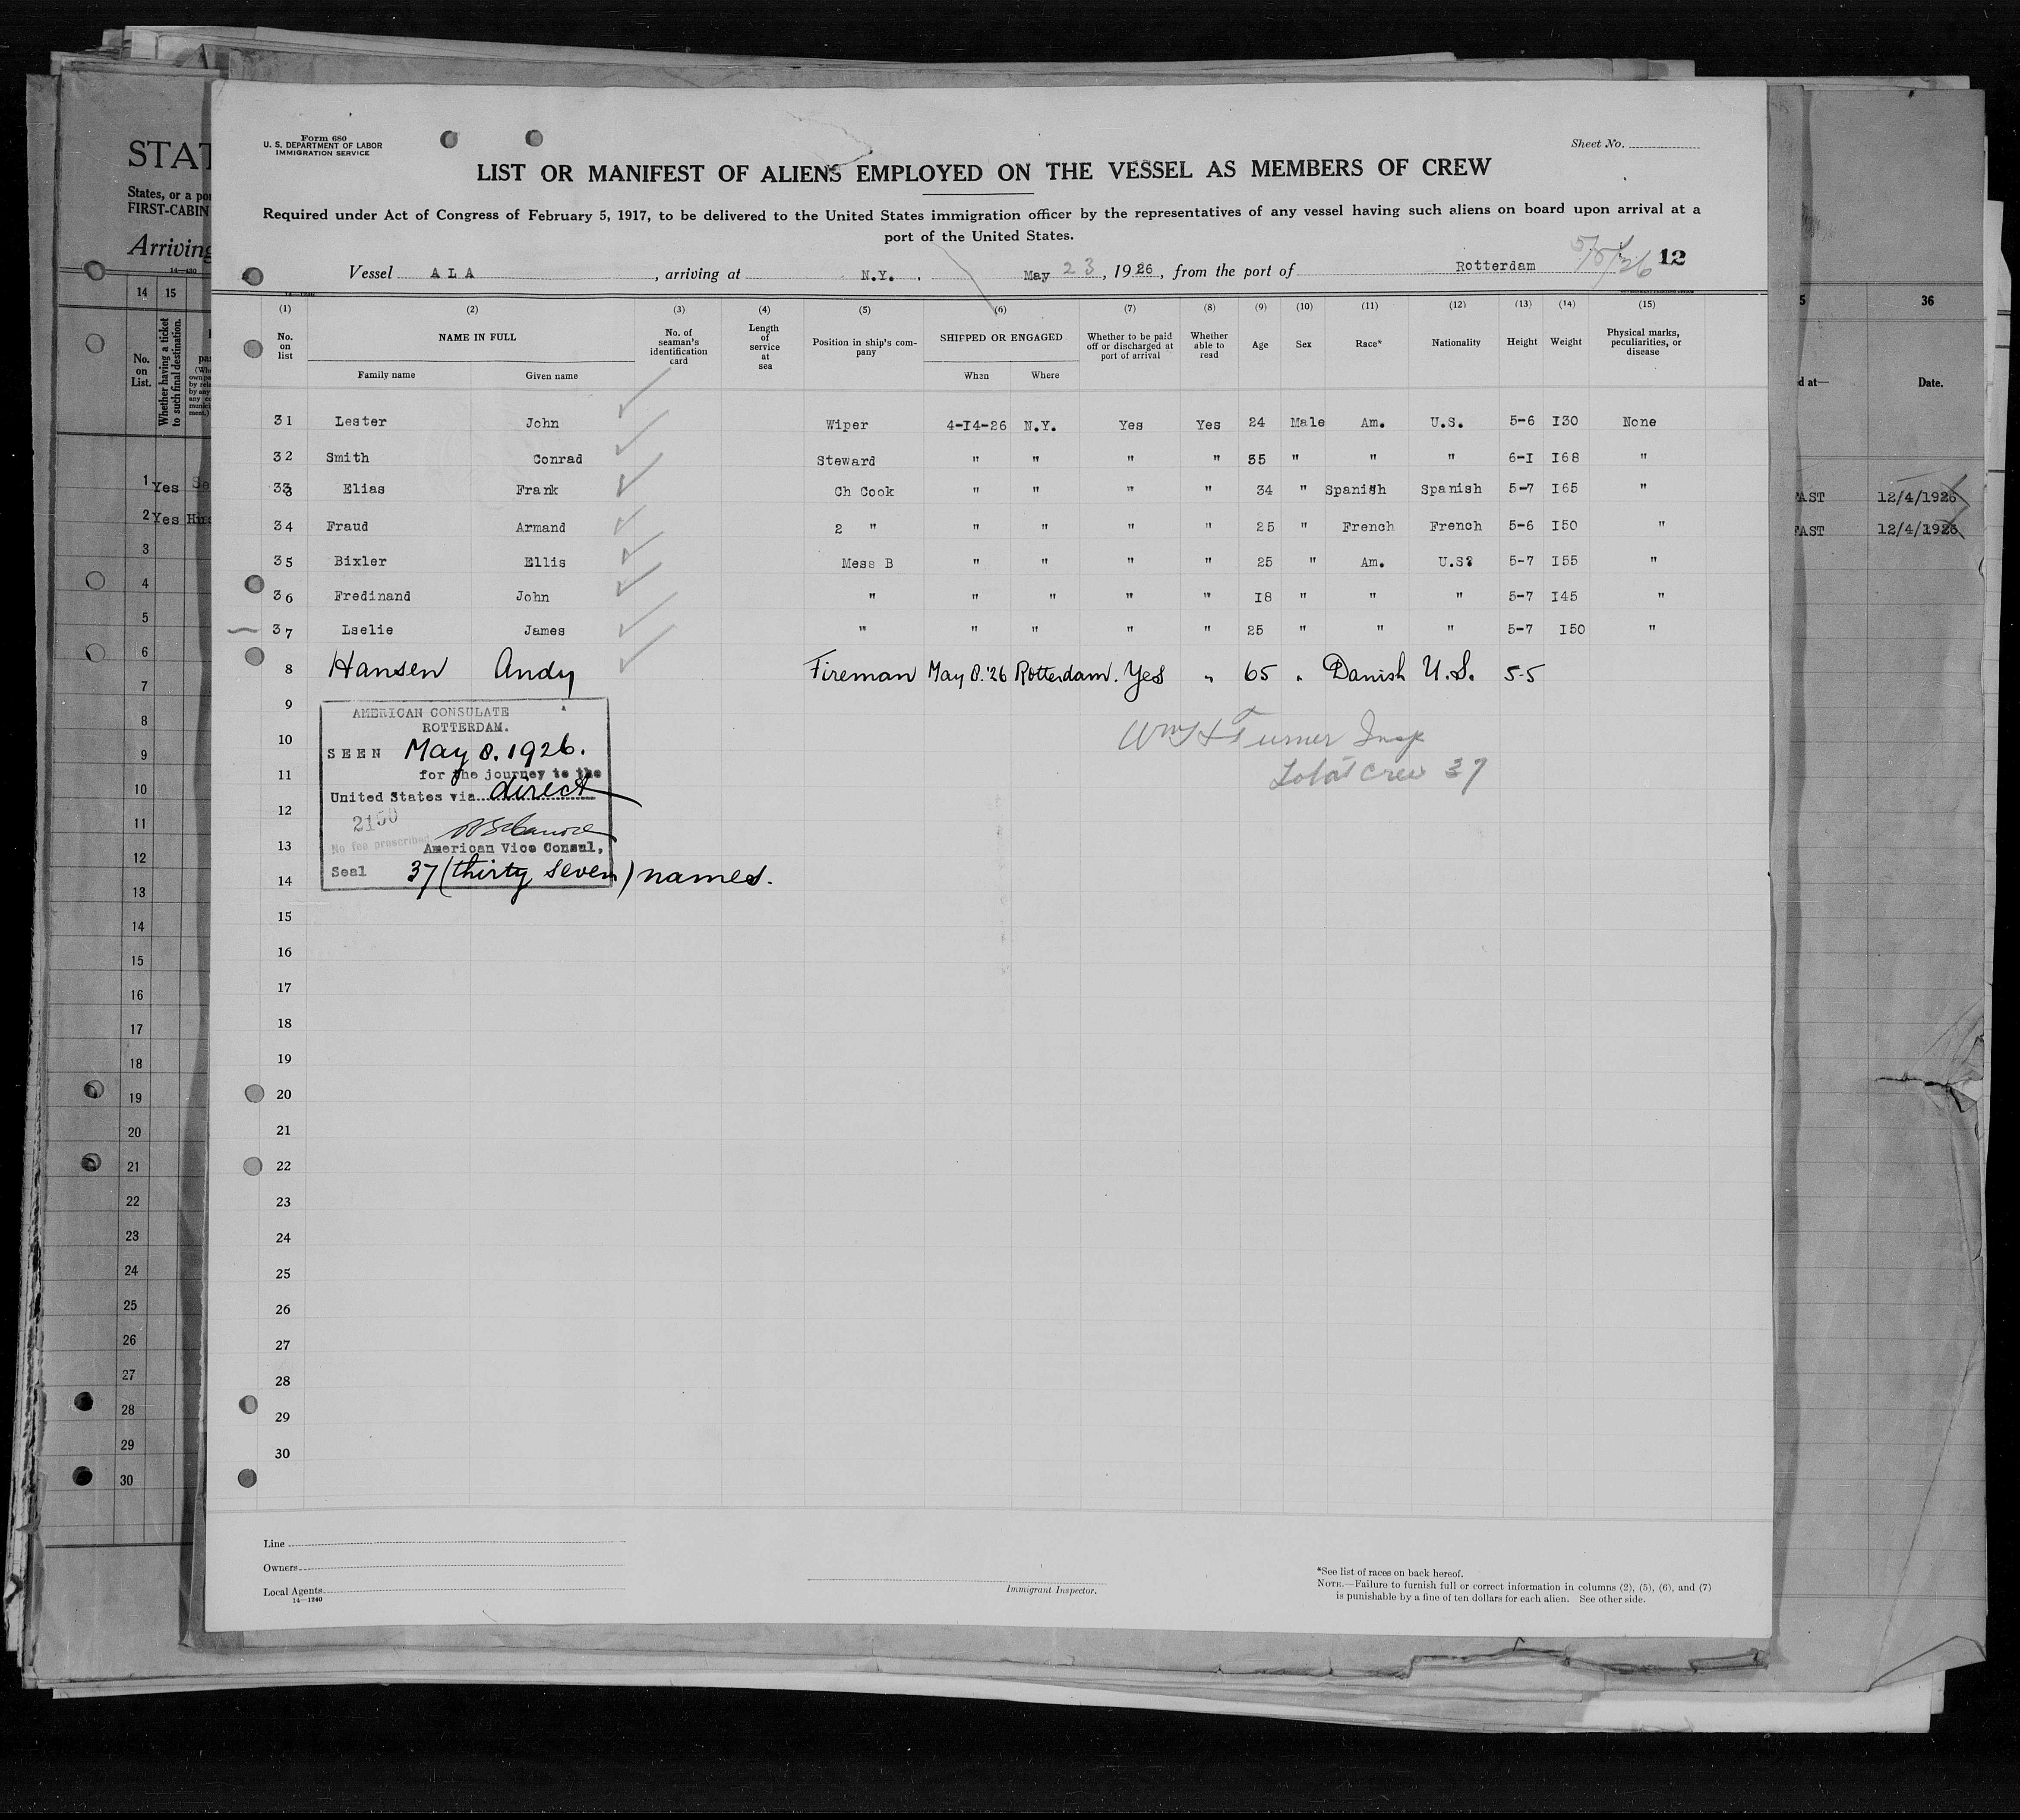 Form 680
U. S. DEPARTMENT OF LABOR
IMMIGRATION SERVICE
Sheet No.
LIST OR MANIFEST OF ALIENS EMPLOYED ON THE VESSEL AS MEMBERS OF CREW
Required under Act of Congress of February 5, 1917, to be delivered to the United States immigration officer by the representatives of any vessel having such aliens on board upon arrival at a
port of the United States.
Vessel ALA, arriving at N.Y. May 23, 1926, from the port of Rotterdam 12
(1) (2) (3) (4) (5) (6) (7) (8) (9) (10) (11) (12) (13) (14) (15)
No. on list NAME IN FULL No. of seaman's identification card Length of service at sea Position in ship's company SHIPPED OR ENGAGED Whether to be paid off or discharged at port of arrival Whether able to read Age Sex Race* Nationality Height Weight Physical marks, peculiarities, or disease
Family name Given name When Where
31 Lester John Wiper 4-14-26 N.Y. Yes Yes 24 Male Am. U.S. 5-6 130 None
32 Smith Conrad Steward " " " " 35 " " " 6-1 168 "
33 Elias Frank Ch Cook " " " " 34 " Spanish Spanish 5-7 165 "
34 Fraud Armand 2 " " " " " 25 " French French 5-6 150 "
35 Bixler Ellis Mess B " " " " 25 " Am. U.S? 5-7 155 "
36 Fredinand John " " " " " 18 " " " 5-7 145 "
37 Lselie James " " " " " 25 " " " 5-7 150 "
8 Hansen Andy Fireman May 8.'26 Rotterdam. Yes " 65 " Danish U.S. 5-5
9
AMERICAN CONSULATE
ROTTERDAM.
10
SEEN May 8. 1926.
Wm H Turner Insp
for the journey to the
11
Total crew 37
United States via direct
12
2150
No fee prescribed
13
American Vice Consul,
Seal 37 (thirty seven) names.
14
15
16
17
18
19
20
21
22
23
24
25
26
27
28
29
30
Line
Owners
Local Agents
14—1240
Immigrant Inspector.
*See list of races on back hereof.
NOTE.—Failure to furnish full or correct information in columns (2), (5), (6), and (7)
is punishable by a fine of ten dollars for each alien. See other side.
STAT
States, or a po
FIRST-CABIN
Arriving
14—430
14 15
No. on List. Whether having a ticket to such final destination.
1 Yes
2 Yes
3
4
5
6
7
8
9
10
11
12
13
14
15
16
17
18
19
20
21
22
23
24
25
26
27
28
29
30
36
d at— Date.
FAST 12/4/1926
FAST 12/4/1926